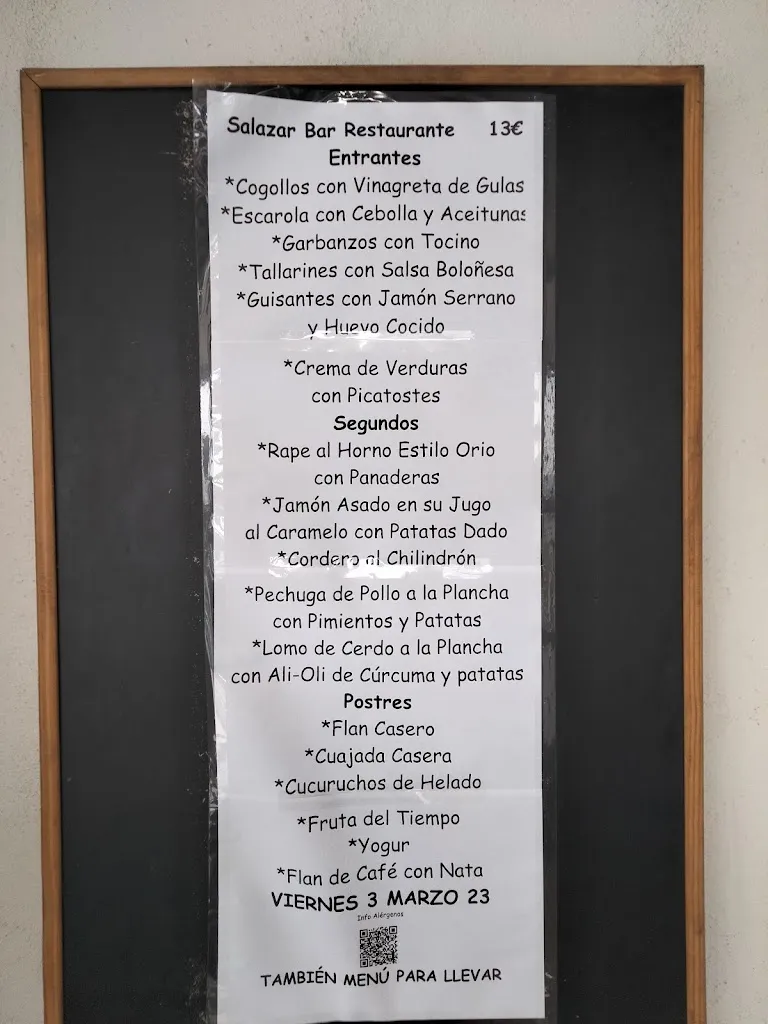 Salazar Bar Restaurante 13€
Entrantes
*Cogollos con Vinagreta de Gulas
*Escarola con Cebolla y Aceitunas
*Garbanzos con Tocino
*Tallarines con Salsa Boloñesa
*Guisantes con Jamón Serrano
y Huevo Cocido
*Crema de Verduras
con Picatostes
Segundos
*Rape al Horno Estilo Orio
con Panaderas
*Jamón Asado en su Jugo
al Caramelo con Patatas Dado
*Cordero al Chilindrón
*Pechuga de Pollo a la Plancha
con Pimientos y Patatas
*Lomo de Cerdo a la Plancha
con Ali-Oli de Cúrcuma y patatas
Postres
*Flan Casero
*Cuajada Casera
*Cucuruchos de Helado
*Fruta del Tiempo
*Yogur
*Flan de Café con Nata
VIERNES 3 MARZO 23
Info Alérgenos
TAMBIÉN MENÚ PARA LLEVAR